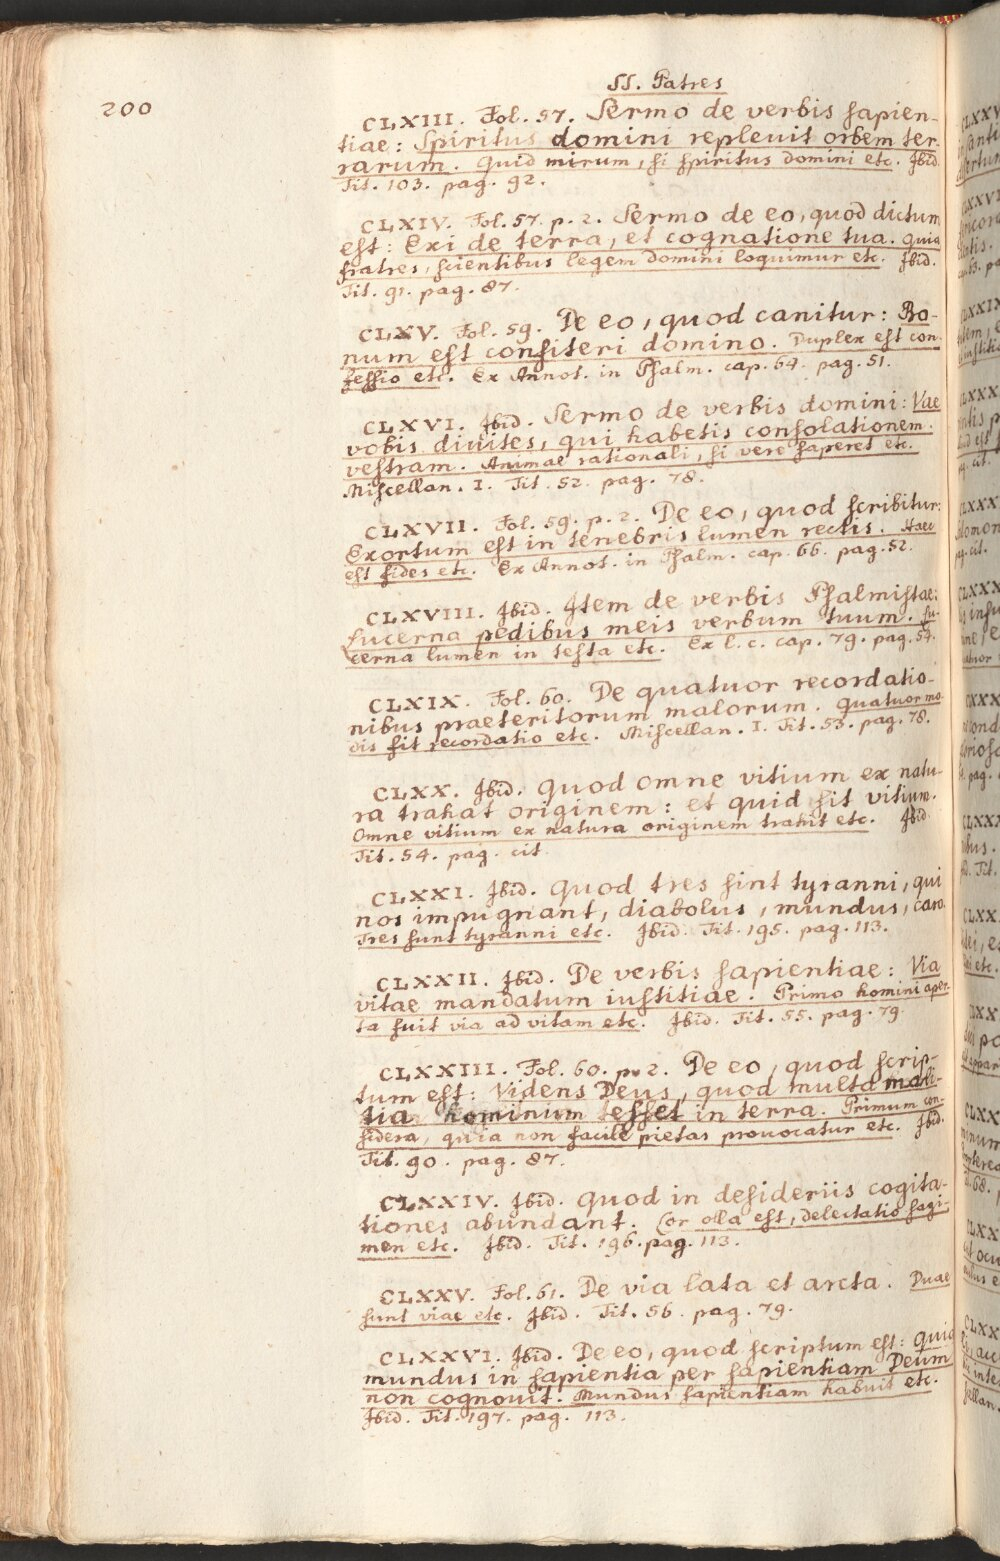 SS. Patres
200
CLXIII. Fol. 57. Sermo de verbis sapien-
tiae: Spiritus domini repleuit orbem ter-
rarum. Quid mirum, si spiritus domini etc. Ibid.
Tit. 103. pag. 92.
CLXIV. Fol. 57. p. 2. Sermo de eo, quod dictum
est: Exi de terra, et cognatione tua. Quia
fratres, scientibus legem domini loquimur etc. Ibid.
Tit. 91. pag. 87.
CLXV. Fol. 59. De eo, quod canitur: Bo-
num est confiteri domino. Duplex est con-
fessio etc. Ex Annot. in Psalm. cap. 64. pag. 51.
CLXVI. Ibid. Sermo de verbis domini: Vae
vobis diuites, qui habetis consolationem
vestram. Animae rationali, si vere saperet etc.
Miscellan. I. Tit. 52. pag. 78.
CLXVII. Fol. 59. p. 2. De eo, quod scribitur:
Exortum est in tenebris lumen rectis. Haec
est fides etc. Ex Annot. in Psalm. cap. 66. pag. 52.
CLXVIII. Ibid. Item de verbis Psalmistae:
Lucerna pedibus meis verbum tuum. Lu-
cerna lumen in testa etc. Ex l. c. cap. 79. pag. 54.
CLXIX. Fol. 60. De quatuor recordatio-
nibus praeteritorum malorum. Quatuor mo-
dis fit recordatio etc. Miscellan. I. Tit. 53. pag. 78.
CLXX. Ibid. Quod omne vitium ex natu-
ra trahat originem: et quid sit vitium.
Omne vitium ex natura originem trahit etc. Ibid.
Tit. 54. pag. cit.
CLXXI. Ibid. Quod tres sint tyranni, qui
nos impugnant, diabolus, mundus, caro.
Tres sunt tyranni etc. Ibid. Tit. 195. pag. 113.
CLXXII. Ibid. De verbis sapientiae: Via
vitae mandatum iustitiae. Primo homini aper-
ta fuit via ad vitam etc. Ibid. Tit. 55. pag. 79.
CLXXIII. Fol. 60. p. 2. De eo, quod scrip-
tum est: Videns Deus, quod multa mali-
tia hominum esset in terra. Primum con-
sidera, quia non facile pietas prouocatur etc. Ibid.
Tit. 90. pag. 87.
CLXXIV. Ibid. Quod in desideriis cogita-
tiones abundant. Cor olla est, delectatio sagi-
men etc. Ibid. Tit. 196. pag. 113.
CLXXV. Fol. 61. De via lata et arcta. Duae
sunt viae etc. Ibid. Tit. 56. pag. 79.
CLXXVI. Ibid. De eo, quod scriptum est: Quia
mundus in sapientia per sapientiam Deum
non cognouit. Mundus sapientiam habuit etc.
Ibid. Tit. 197. pag. 113.